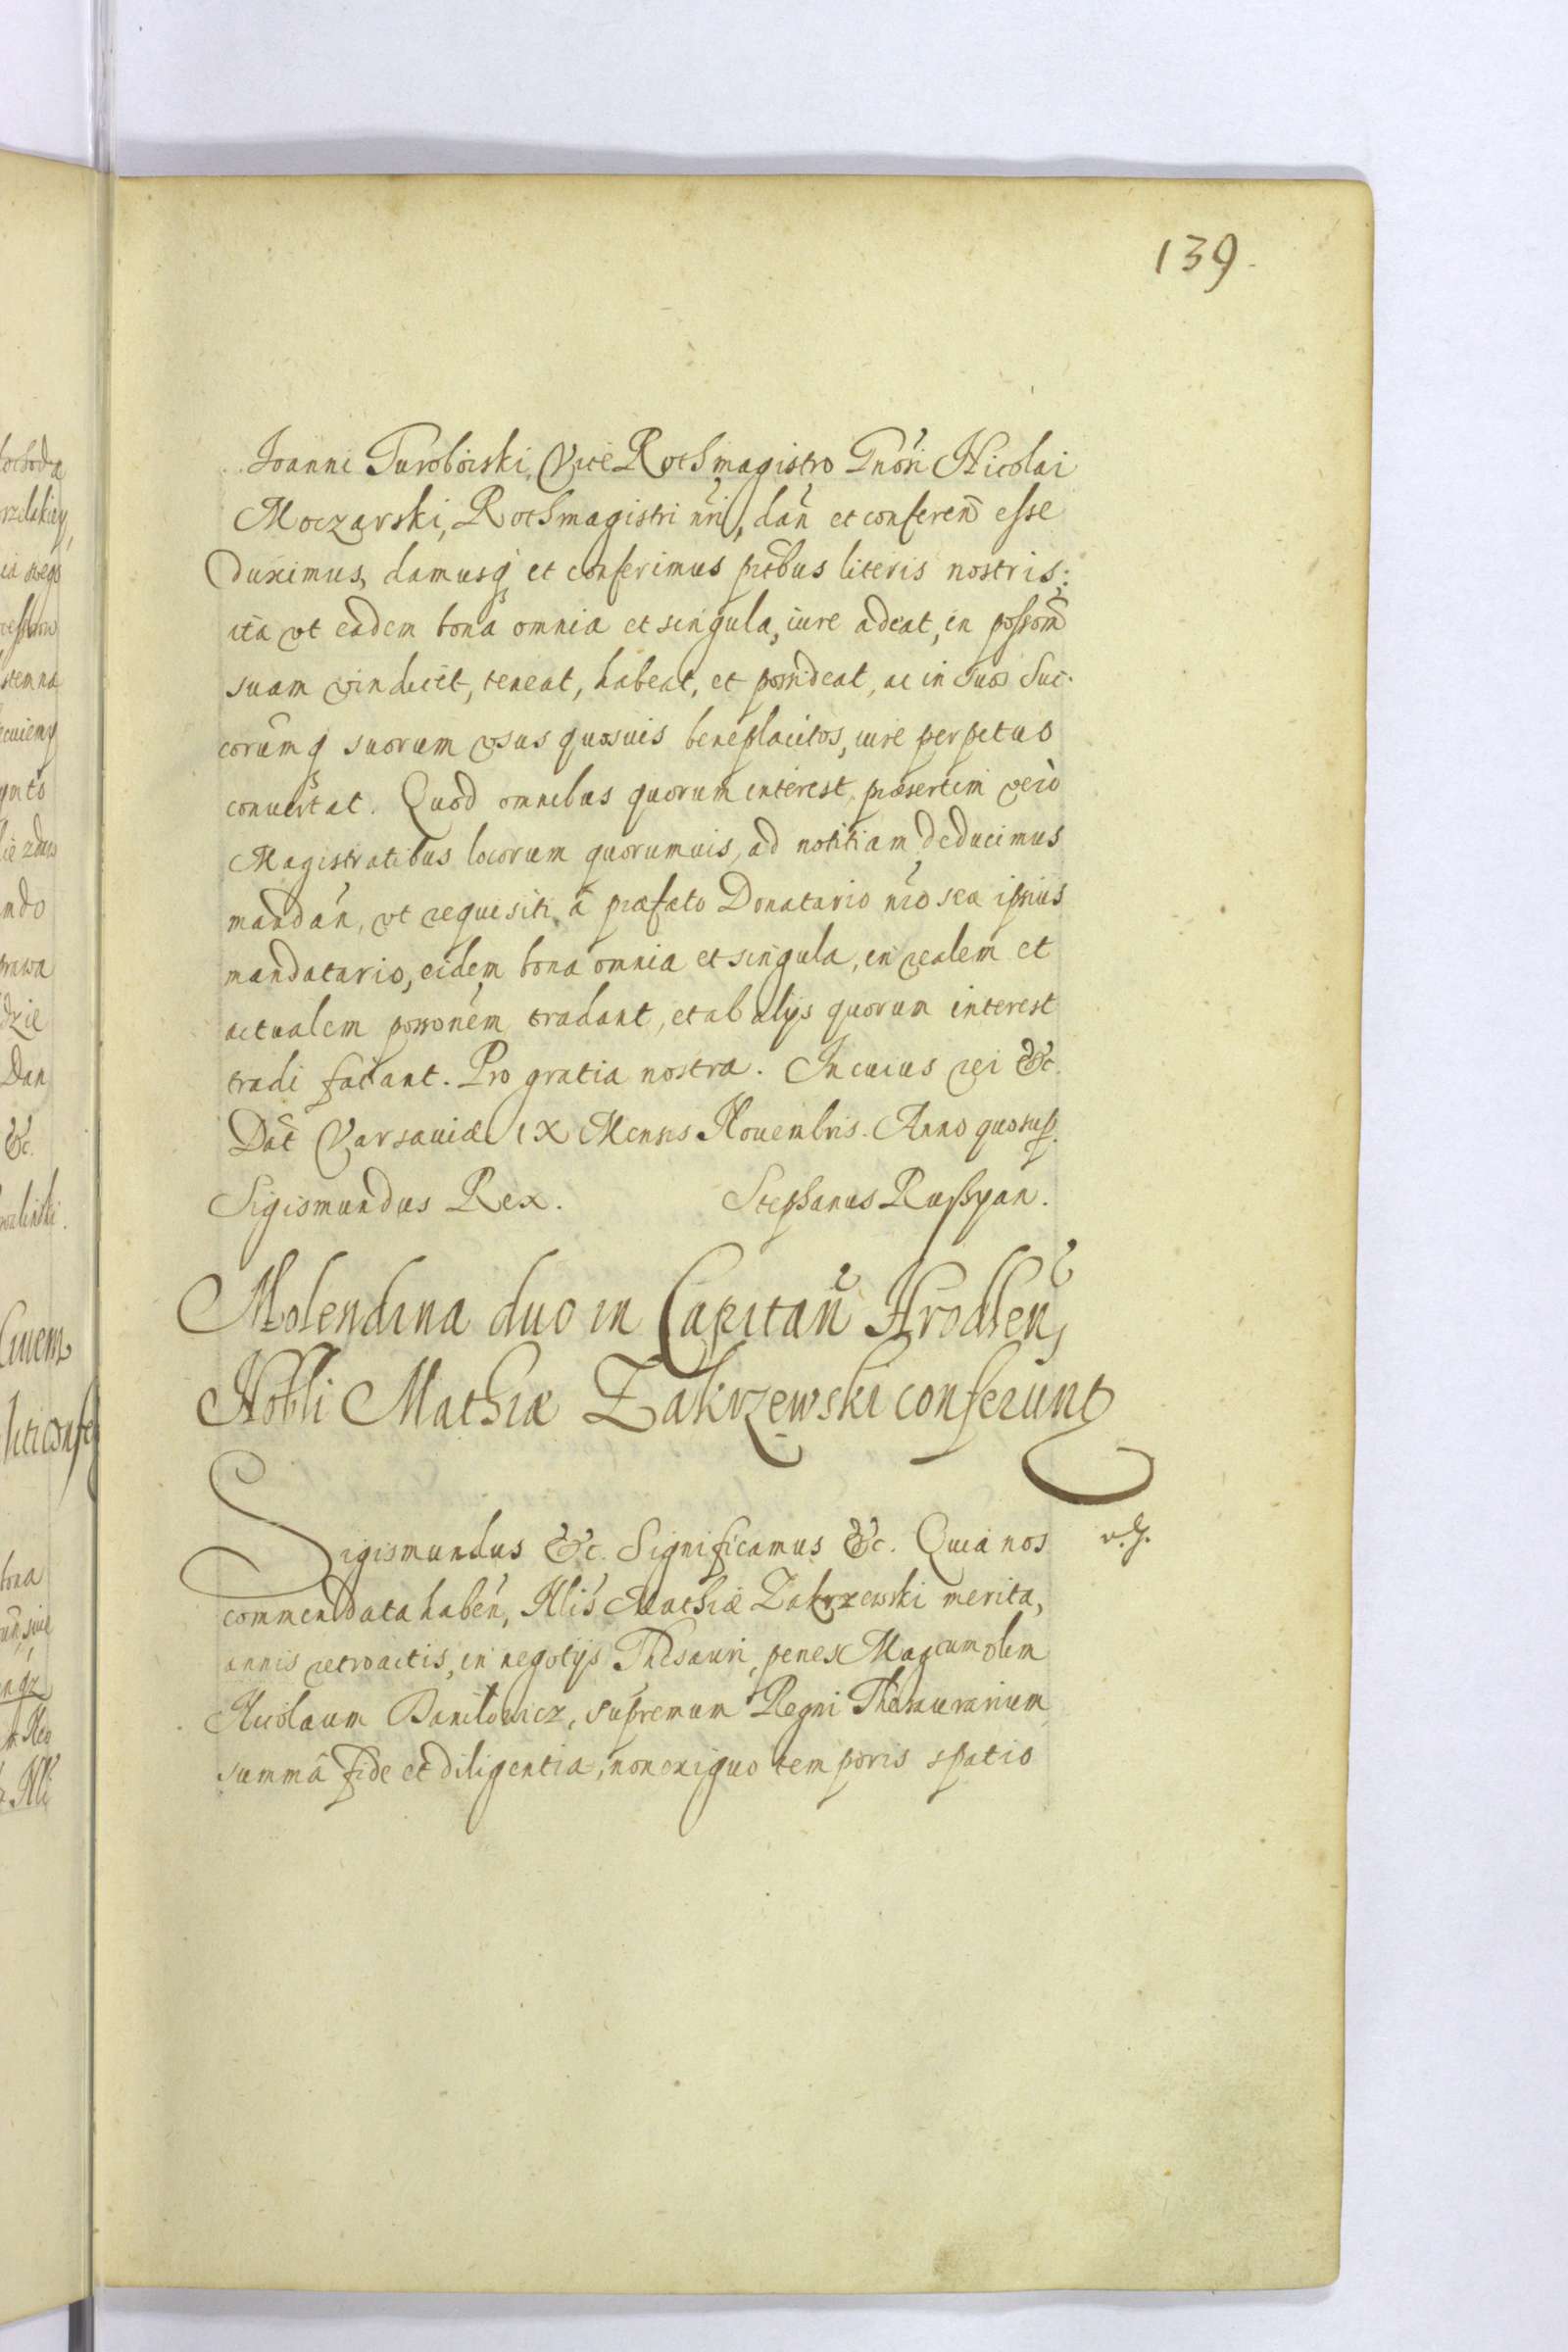 139.
Joanni Turoboiski, Vice Rothmagistro Gnōri Nicolai
Moczarski, Rothmagistri nri, dan et conferen̄ esse
duximus, damusq et conferimus pntbus literis nostris;
ita vt eadem bona omnia et singula, iure adeat, in possom̄
suam vindicet, teneat, habeat, et possideat, ac in suos Suc-
corumq suorum vsus quosuis beneplacitos, iure perpetuo
conuertat. Quod omnibus quorum interest, præsertim verò
Magistratibus locorum quorumuis, ad notitiam deducimus
mandan, vt requisiti à præfato Donatario nro seu ipsius
mandatario, eidem bona omnia et singula, in realem et
actualem possonem tradant, et ab alijs quorum interest
tradi faciant. Pro gratia nostra. In cuius rei &c.
Dat Varsauiæ IX Mensis Nouembris. Anno quo sup.
Sigismundus Rex. Stephanus Russyan.
Molendina duo in Capitan Hrodlen
Nobli Mathiæ Zakrzewski conferunt
Sigismundus &c. Significamus &c. Quia nos
commendata haben, Nlis Mathiæ Zakrzewski merita,
annis retroactis, in negotijs Thesauri, penes Magcum olim
Nicolaum Daniłowicz, Supremum Regni Thesaurarium,
summâ fide et diligentia, non exiguo temporis spatio